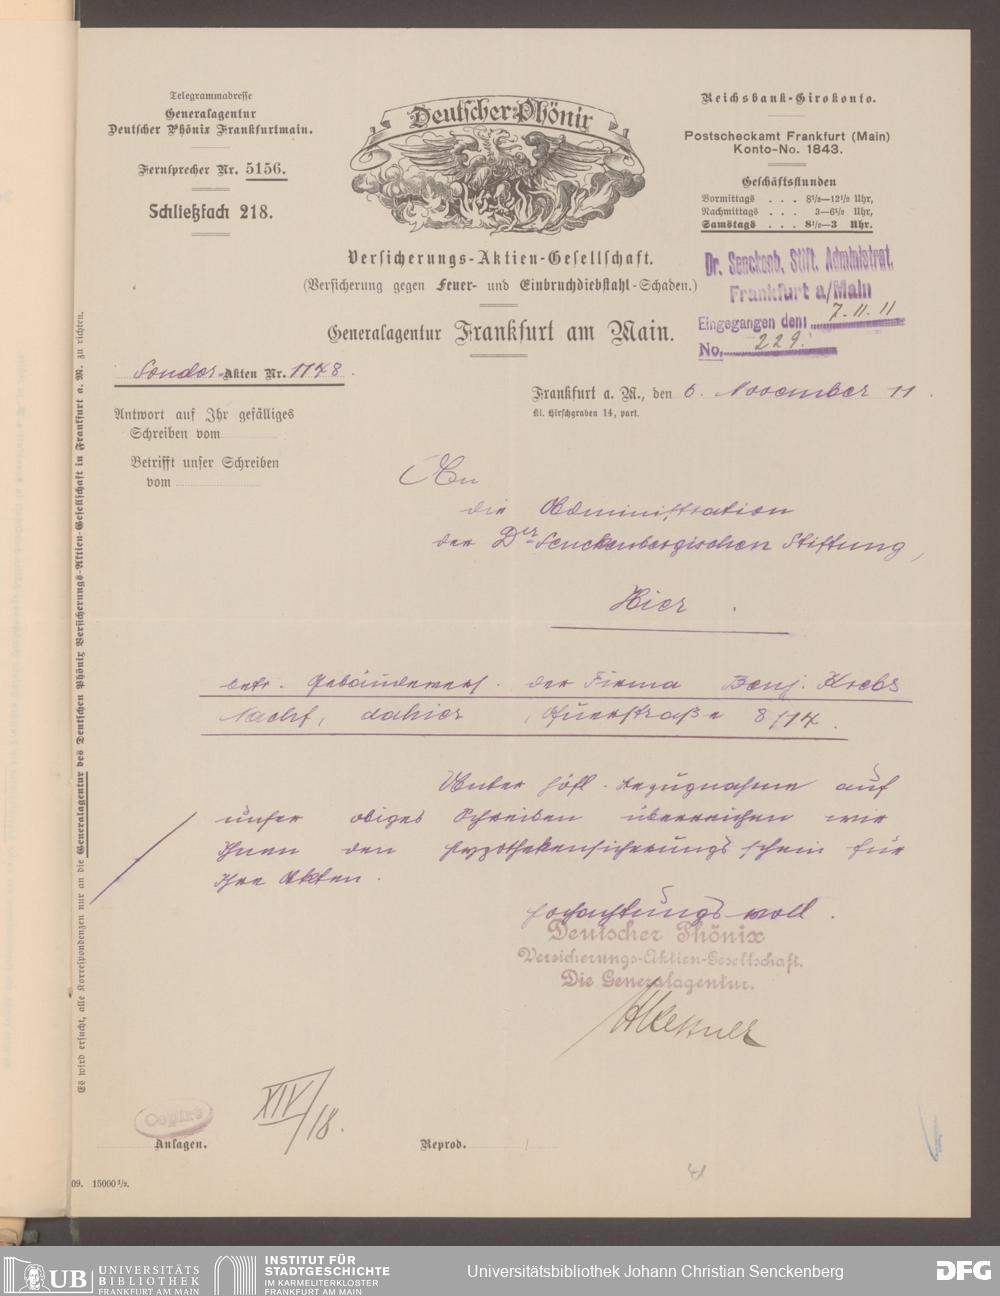 Telegrammadresse
Generalagentur
Deutscher Phönix Frankfurtmain.
Fernsprecher Nr. 5156.
Schließfach 218.
Deutscher Phönix
Versicherungs-Aktien-Gesellschaft.
(Versicherung gegen Feuer- und Einbruchdiebstahl-Schaden.)
Generalagentur Frankfurt am Main.
Reichsbank-Girokonto.
Postscheckamt Frankfurt (Main)
Konto-No. 1843.
Geschäftsstunden
Vormittags . . . 8½—12½ Uhr,
Nachmittags . . . 3—6½ Uhr,
Samstags . . . 8½—3 Uhr.
Dr. Senckenb. Stift. Administrat.
Frankfurt a/Main
Eingegangen den: 7.11.11
No. 229.
Sonder-Akten Nr. 1748.
Frankfurt a. M., den 6. November 11.
Kl. Hirschgraben 14, part.
Antwort auf Ihr gefälliges
Schreiben vom
Betrifft unser Schreiben
vom
An
die Administration
der Dr. Senckenbergischen Stiftung,
Hier.
betr. Gebäudevers. der Firma Benj. Krebs
Nachf, dahier, 8/14.
Unter höfl. Bezugnahme auf
unser obiges Schreiben überreichen wir
Ihnen den Hypothekensicherungsschein für
Ihre Akten.
Hochachtungsvoll.
Deutscher Phönix
Versicherungs-Aktien-Gesellschaft.
Die Generalagentur.
Es wird ersucht, alle Korrespondenzen nur an die Generalagentur des Deutschen Phönix Versicherungs-Aktien-Gesellschaft in Frankfurt a. M. zu richten.
XIV/18.
Anlagen.
Reprod.
09. 15000 ½.
41
UB UNIVERSITÄTS
BIBLIOTHEK
FRANKFURT AM MAIN
INSTITUT FÜR
STADTGESCHICHTE
IM KARMELITERKLOSTER
FRANKFURT AM MAIN
Universitätsbibliothek Johann Christian Senckenberg
DFG